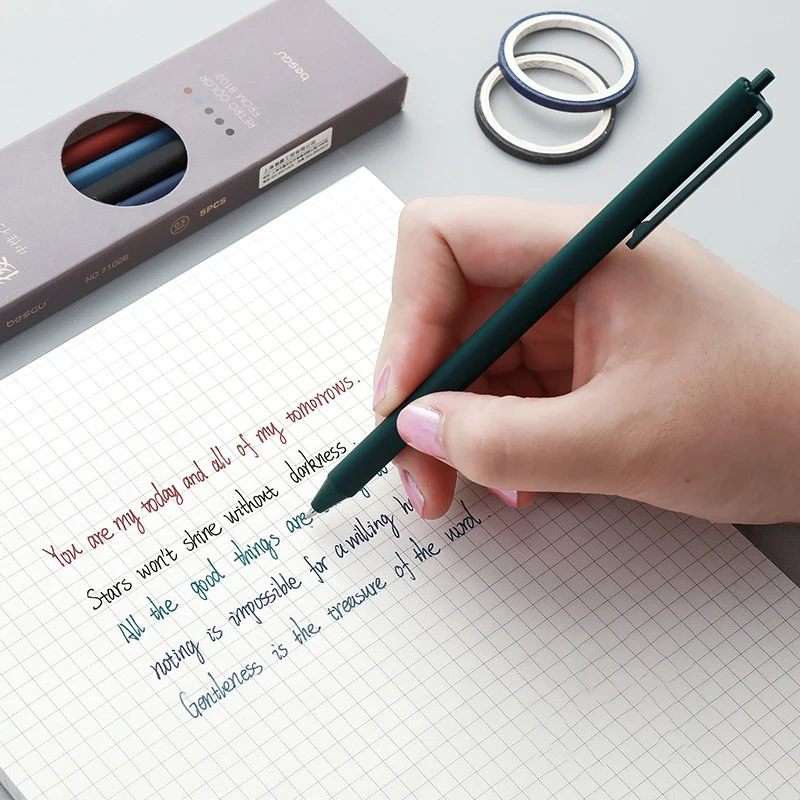 bescu
RETRO COLOR
FROM 9102
5PCS
0.5
NO 71026
bescu
中性
You are my today and all of my tomorrows.
Stars won't shine without darkness.
All the good things are
noting is impossible for a willing h
Gentleness is the treasure of the word.